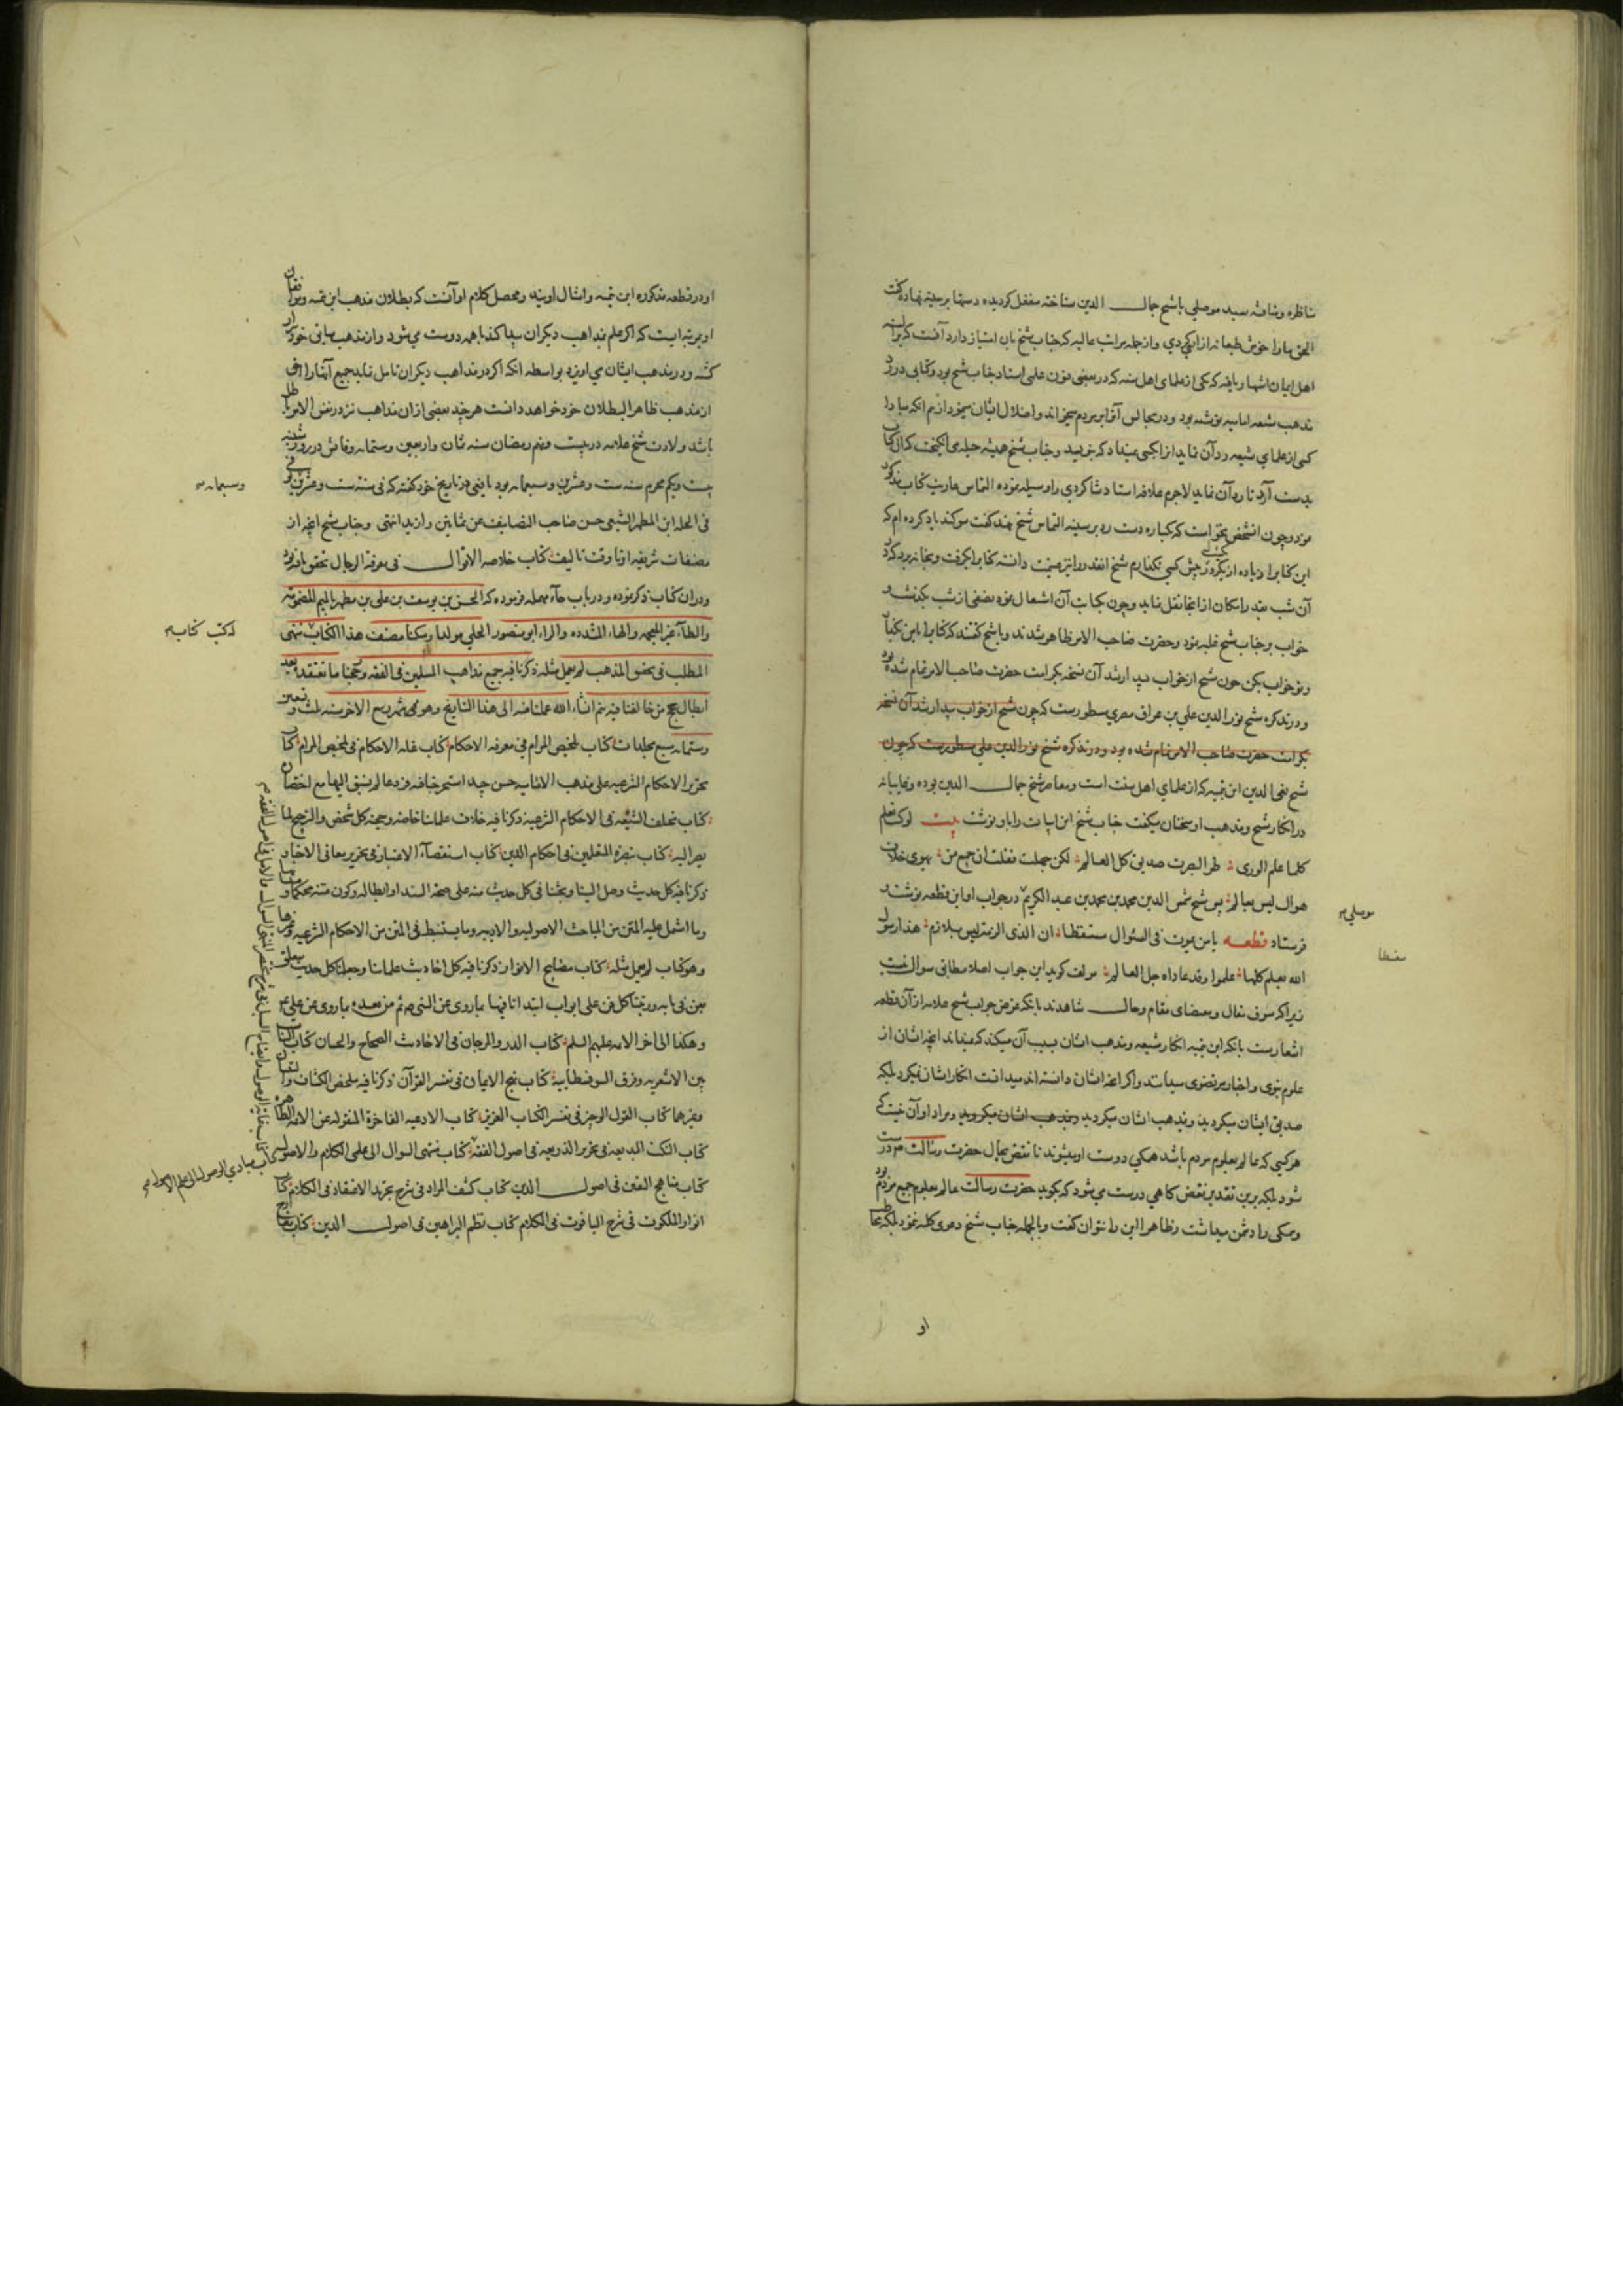 مناظره و مباحثه سید موصلی با شیخ جمال الدین ساخته منفعل گردیده دستها بر سینه نهاده گفت
الحق ما را خوش طبعانه از
اهل ایمان اشتهار یافته که یکی از علمای اهل سنه که در بعضی فنون علمی استاد جناب شیخ بود و کتابی در رد
مذهب شیعه امامیه نوشته بود و در مجالس آنرا بر مردم میخواند و اضلال ایشان مینمود از بیم آنکه مبادا
کسی از علمای شیعه رد آن نماید آنرا بکسی نمیداد که بنویسد و جناب شیخ همیشه حیله می انگیخت که آن کتاب
بدست آرد تا رد آن نماید لاجرم علاقه استاد و شاگردی را وسیله نموده التماس عاریت کتاب مذکور
نمود و چون آن شخص نخواست که یکباره دست رد بر سینه التماس شیخ نهد گفت سوگند یاد کرده ام که
این کتاب را زیاده از یک روز پیش کسی نگذارم شیخ آنقدر را نیز غنیمت دانسته کتاب را بگرفت و بخانه برد که در
آن شب بقدر امکان از آنجا نقل نماید و چون بکتابت آن اشتغال نمود و نصفی از شب بگذشت
خواب بر جناب شیخ غلبه نمود و حضرت صاحب الامر ظاهر شدند و با شیخ گفتند که کتاب را بمن بگذار
و تو خواب بکن چون شیخ از خواب بیدار شد آن نسخه بکرامت حضرت صاحب الامر تمام شده بود
و در تذکره شیخ نور الدین علی بن عراق مصری مسطورست که چون شیخ از خواب بیدار شد آن نسخه
بکرامت حضرت صاحب الامر تمام شده بود و در تذکره شیخ نور الدین علی مسطورست که چون
شیخ تقی الدین ابن تیمیه که از علمای اهل سنت است و معاصر شیخ جمال الدین بوده و غایبانه
در انکار شیخ و مذهب او سخنان میگفت جناب شیخ این ابیات را باو نوشت بیت لو کنت تعلم
کلما علم الوری طرا لصرت صدیق کل العالم لکن جهلت فقلت ان جمیع من یهوی خلاف
هواک لیس بعالم پس شیخ شمس الدین محمد بن محمد بن عبد الکریم در جواب او این قطعه نوشته
موصلی
فرستاد قطعه یا من یموه فی السئوال مسفسطا ان الذی الزمت لیس بلازم هذا رسول
سفسطا
الله یعلم کلما علموا وقد عاداه جل العالم مولف گوید این جواب اصلا مطابق سوال نیست
زیرا که سوق مقال و مقتضای مقام و حال شاهدند بانکه غرض جواب شیخ علامه از آن قطعه
اشعارست بانکه ابن تیمیه انکار شیعه و مذهب ایشان بسبب آن میکند که نمیداند آنچه ایشان از
علوم نبوی و اخبار مرتضوی میدانند و اگر آنچه ایشان دانسته اند میدانست انکار ایشان نمیکرد بلکه
صدیق ایشان میگردید و مذهب ایشان میگروید و مذهب ایشان میگروید و مراد او آن نیست که
هر کسی که عالم بمعلوم مردم باشد همگی دوست او میشوند تا نقض بحال حضرت رسالت درست
شود بلکه برین تقدیر نقض گاهی درست می شود که بگوید حضرت رسالت عالم بمعلوم جمیع مردم بود
و همگی را دشمن میداشت و ظاهرا این را نتوان گفت و بالجمله جناب شیخ دعوی کلیه ننمود بلکه
او
او در قطعه مذکوره ابن تیمیه و امثال اویند و محصل کلام او آنست که بطلان مذهب ابن تیمیه و نقصان
او بمرتبه ایست که اگر علم بمذاهب دیگران پیدا کند با همه دوست می شود و از مذهب سابق خود
گشته و در مذهب ایشان می آویزد بواسطه آنکه اگر در مذاهب دیگران تامل نماید جمیع آنها را احق
از مذهب ظاهر البطلان خود خواهد دانست هر چند بعضی از آن مذاهب نیز در نفس الامر باطل
باشد ولادت شیخ علامه در بیست و نهم رمضان سنه ثمان و اربعین و ستمائه و وفاتش در روز شنبه
بیست و یکم محرم سنه ست و عشرین و سبعمائه بود یافعی در تاریخ خود گفته که فی سنة ست و عشرین
وسبعمائة
فی الحلة ابن المطهر الشیعی حسن صاحب التصانیف عن ثمانین و ازید انتهی و جناب شیخ آنچه از
مصنفات شریفه او تا وقت تالیف کتاب خلاصه الاقوال فی معرفة الرجال تحقق یافته بود
در آن کتاب ذکر نموده و در باب حاء مهمله فرموده که الحسن بن یوسف بن علی بن مطهر بالمیم المضمومة
والطاء غیر المعجمه والهاء المشدده والراء ابو منصور الحلی مولدا و مسکنا مصنف هذا الکتاب منتهی
له کتب کتاب
المطلب فی تحقیق المذهب لم یعمل مثله ذکرنا فیه جمیع مذاهب المسلمین فی الفقه و رجحنا ما نعتقده بعد
ابطال حجج من خالفنا فیه یتم انشاء الله عملنا منه الی هذا التاریخ و هو شهر ربیع الاخر سنه ثلث و تسعین
و ستمائه سبع مجلدات کتاب تلخیص المرام فی معرفه الاحکام کتاب غایه الاحکام فی تلخیص المرام کتاب
تحریر الاحکام الشرعیه علی مذهب الامامیه حسن جید استخرجنا فیه فروعا لم نسبق الیها مع اختصاره
کتاب مختلف الشیعه فی الاحکام الشرعیه ذکرنا فیه خلاف علمائنا خاصه و حجه کل شخص والترجیح لما
یصیر الیه کتاب تبصرة المتعلمین فی احکام الدین کتاب استقصاء الاعتبار فی تحریر معانی الاخبار
ذکرنا فیه کل حدیث وصل الینا و بحثنا فی کل حدیث منه علی صحة السند او ابطاله و کون متنه محکما او
وما اشتمل علیه المتن من المباحث الاصولیه والادبیه وما یستنبط فی المتن من الاحکام الشرعیه وغیرها
وهو کتاب لم یعمل مثله کتاب مصابیح الانوار ذکرنا فیه کل احادیث علمائنا و جعلنا کل حدیث یتعلق
بفن فی بابه و رتبنا کل فن علی ابواب ابتدانا فیها بما روی عن النبی ص ثم من بعده بما روی عن علی
وهکذا الی اخر الائمه علیهم السلم کتاب الدر والمرجان فی الاحادیث الصحاح والحسان کتاب التناسب
بین الاشعریه و فرق السوفسطائیة کتاب نهج الایمان فی تفسیر القرآن ذکرنا فیه ملخص الکشاف والتبیان
وغیرهما کتاب القول الوجیز فی تفسیر الکتاب العزیز کتاب الادعیه الفاخرة المنقوله عن الائمه الطاهرة
کتاب النکت البدیعه فی تحریر الذریعه فی اصول الفقه کتاب منتهی السوال الی علمی الکلام والاصول
کتاب مبادی الوصول الی علم الاصول
کتاب مناهج الیقین فی اصول الدین کتاب کشف المراد فی شرح تجرید الاعتقاد فی الکلام کتاب
انوار الملکوت فی شرح الیاقوت فی الکلام کتاب نظم البراهین فی اصول الدین کتاب معارج